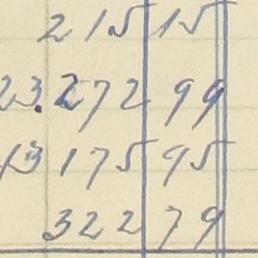 215 15
23.272 99
13 175 95
322 79